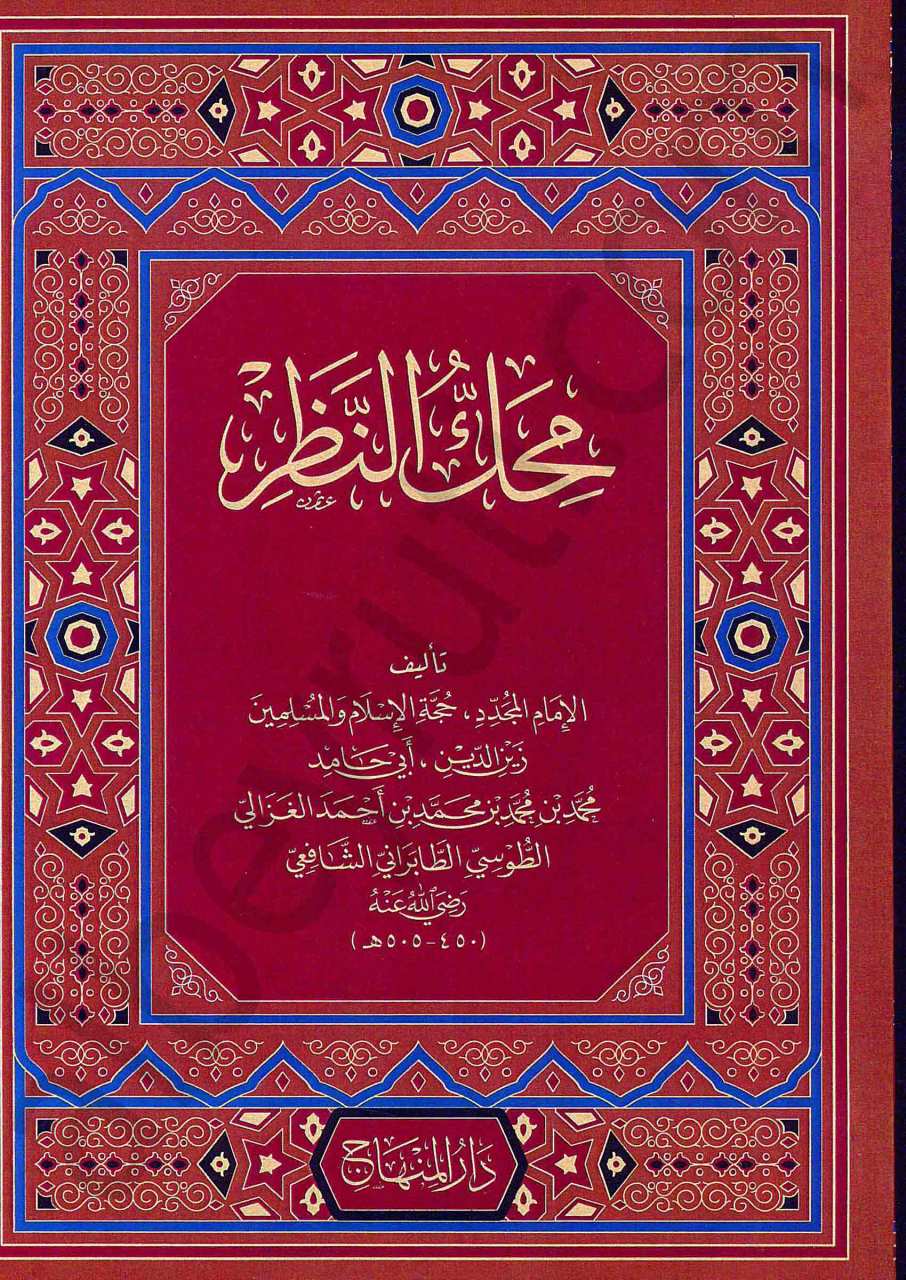 مِحَكُّ النَّظَرِ
تأليف
الإِمَام المُجَدِّدِ، حُجَّة الإِسْلَام وَالمُسْلِمِينَ
زَيْن الدِّيْن، أَبي حَامِد
مُحَمَّد بْن مُحَمَّد بْن مُحَمَّد بْن أَحْمَد الغَزَاليّ
الطُّوْسِيّ الطَّابَرَانِيّ الشَّافِعِيّ
رَضِيَ اللهُ عَنْهُ
(٤٥٠-٥٠٥هـ)
دَارُ المِنْهَاج